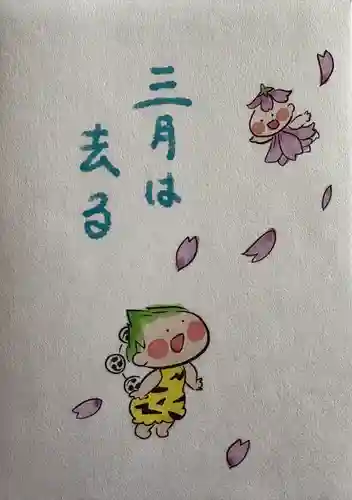 三月は
去る